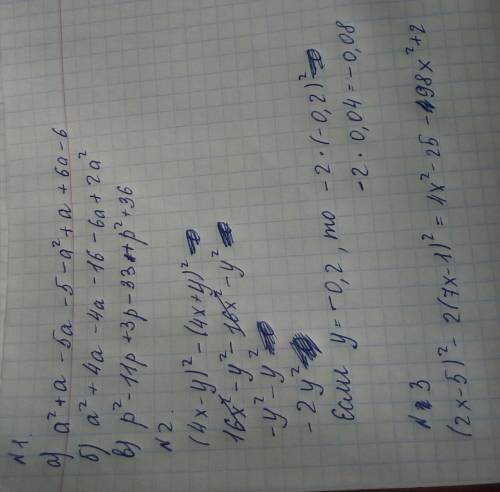 N1.
а) a²+a -5a -5 -a²+a+6a-6
б) a²+4a -4a -16 -6a+2a²
в) p²-11p+3p-33 + p²+36
N2.
(4x-y)² - (4x+y)²
16x² - y² - 16x² - y²
-y² - y²
-2y²
Если y = -0,2, то -2·(-0,2)²
-2·0,04 = -0,08
N3
(2x-5)² - 2(7x-1)² = 4x² - 25 - 98x² + 2